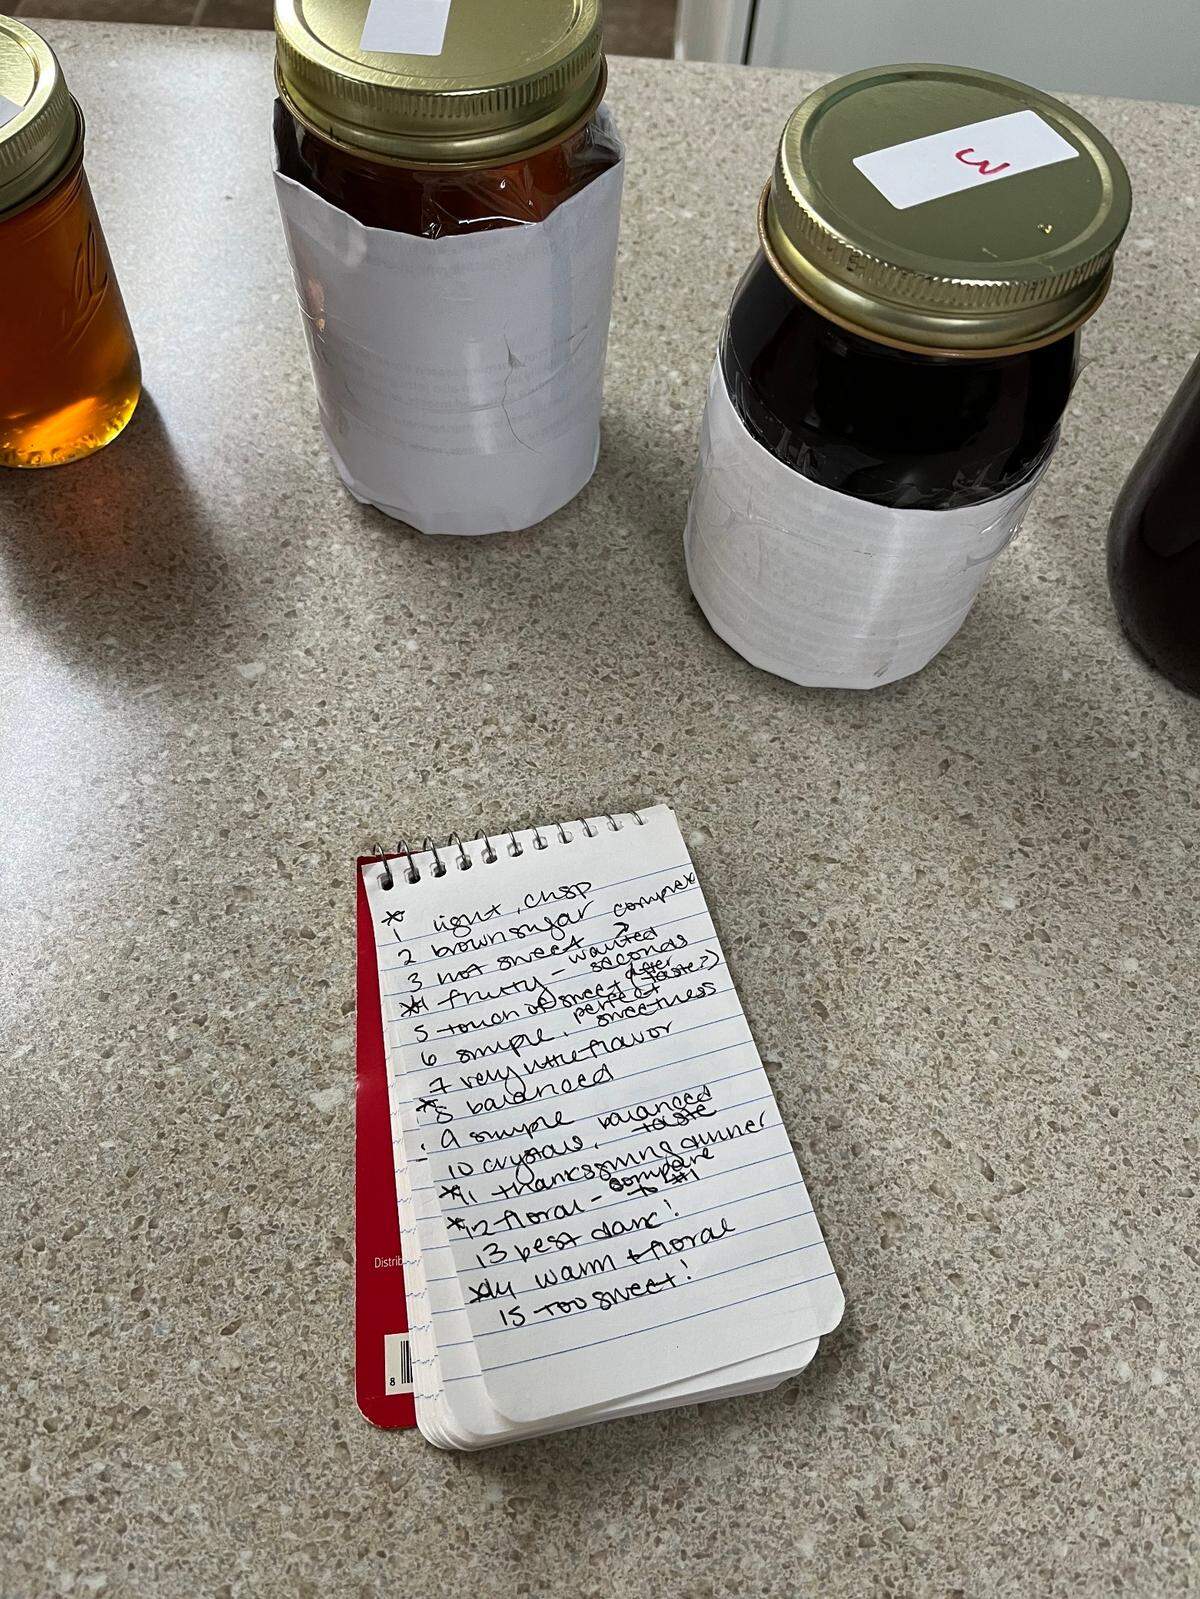 3
* 
1 light, crisp
2 brown sugar complex
3 not sweet?
*4 fruity - wanted seconds
5 touch of sweet (after taste?)
6 simple, perfect sweetness
7 very little flavor
*8 balanced
9 simple
10 crystals, balanced taste
*11 thanksgiving dinner
*12 floral - compare to #1
13 best dark!
*14 warm + floral
15 too sweet!
Distrib
8